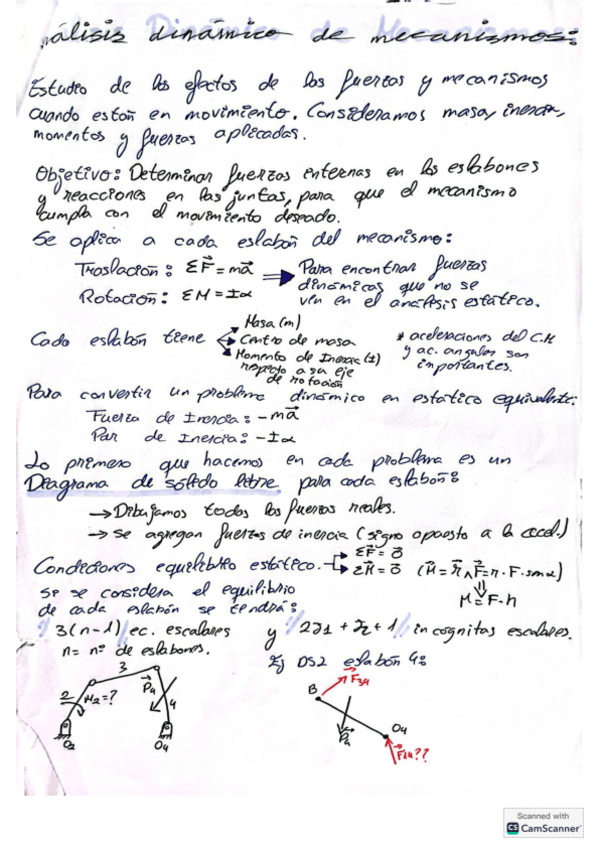 Análisis dinámico de mecanismos:
Estudio de los efectos de las fuerzas y mecanismos
cuando están en movimiento. Consideramos masa, inercia,
momentos y fuerzas aplicadas.
Objetivo: Determinar fuerzas internas en los eslabones
y reacciones en las juntas, para que el mecanismo
cumpla con el movimiento deseado.
Se aplica a cada eslabón del mecanismo:
Traslación: ΣF⃗ = ma⃗ ⇒ Para encontrar fuerzas
dinámicas que no se
Rotación: ΣM = Iα ven en el análisis estático.
Cada eslabón tiene
Masa (m)
Centro de masa
Momento de Inercia (I)
respecto a su eje
de rotación
* aceleraciones del C.M
y ac. angular son
importantes.
Para convertir un problema dinámico en estático equivalente:
Fuerza de Inercia: -ma⃗
Par de Inercia: -Iα
Lo primero que hacemos en cada problema es un
Diagrama de sólido libre para cada eslabón:
→ Dibujamos todas las fuerzas reales.
→ Se agregan fuerzas de inercia (signo opuesto a la acel.)
Condiciones equilibrio estático.
ΣF⃗ = 0⃗
ΣM⃗ = 0⃗ (M⃗ = r⃗ ∧ F⃗ = r · F · sin α)
⇓
M = F · h
Si se considera el equilibrio
de cada eslabón se tendrá:
3(n-1) ec. escalares y 2J1 + J2 + 1 incognitas escalares.
n = nº de eslabones.
Ej DS2 eslabón 4:
3
2 M2=? P⃗4 4
O2 O4
B F⃗34
P⃗4
O4
F⃗14??
Scanned with
CS CamScanner